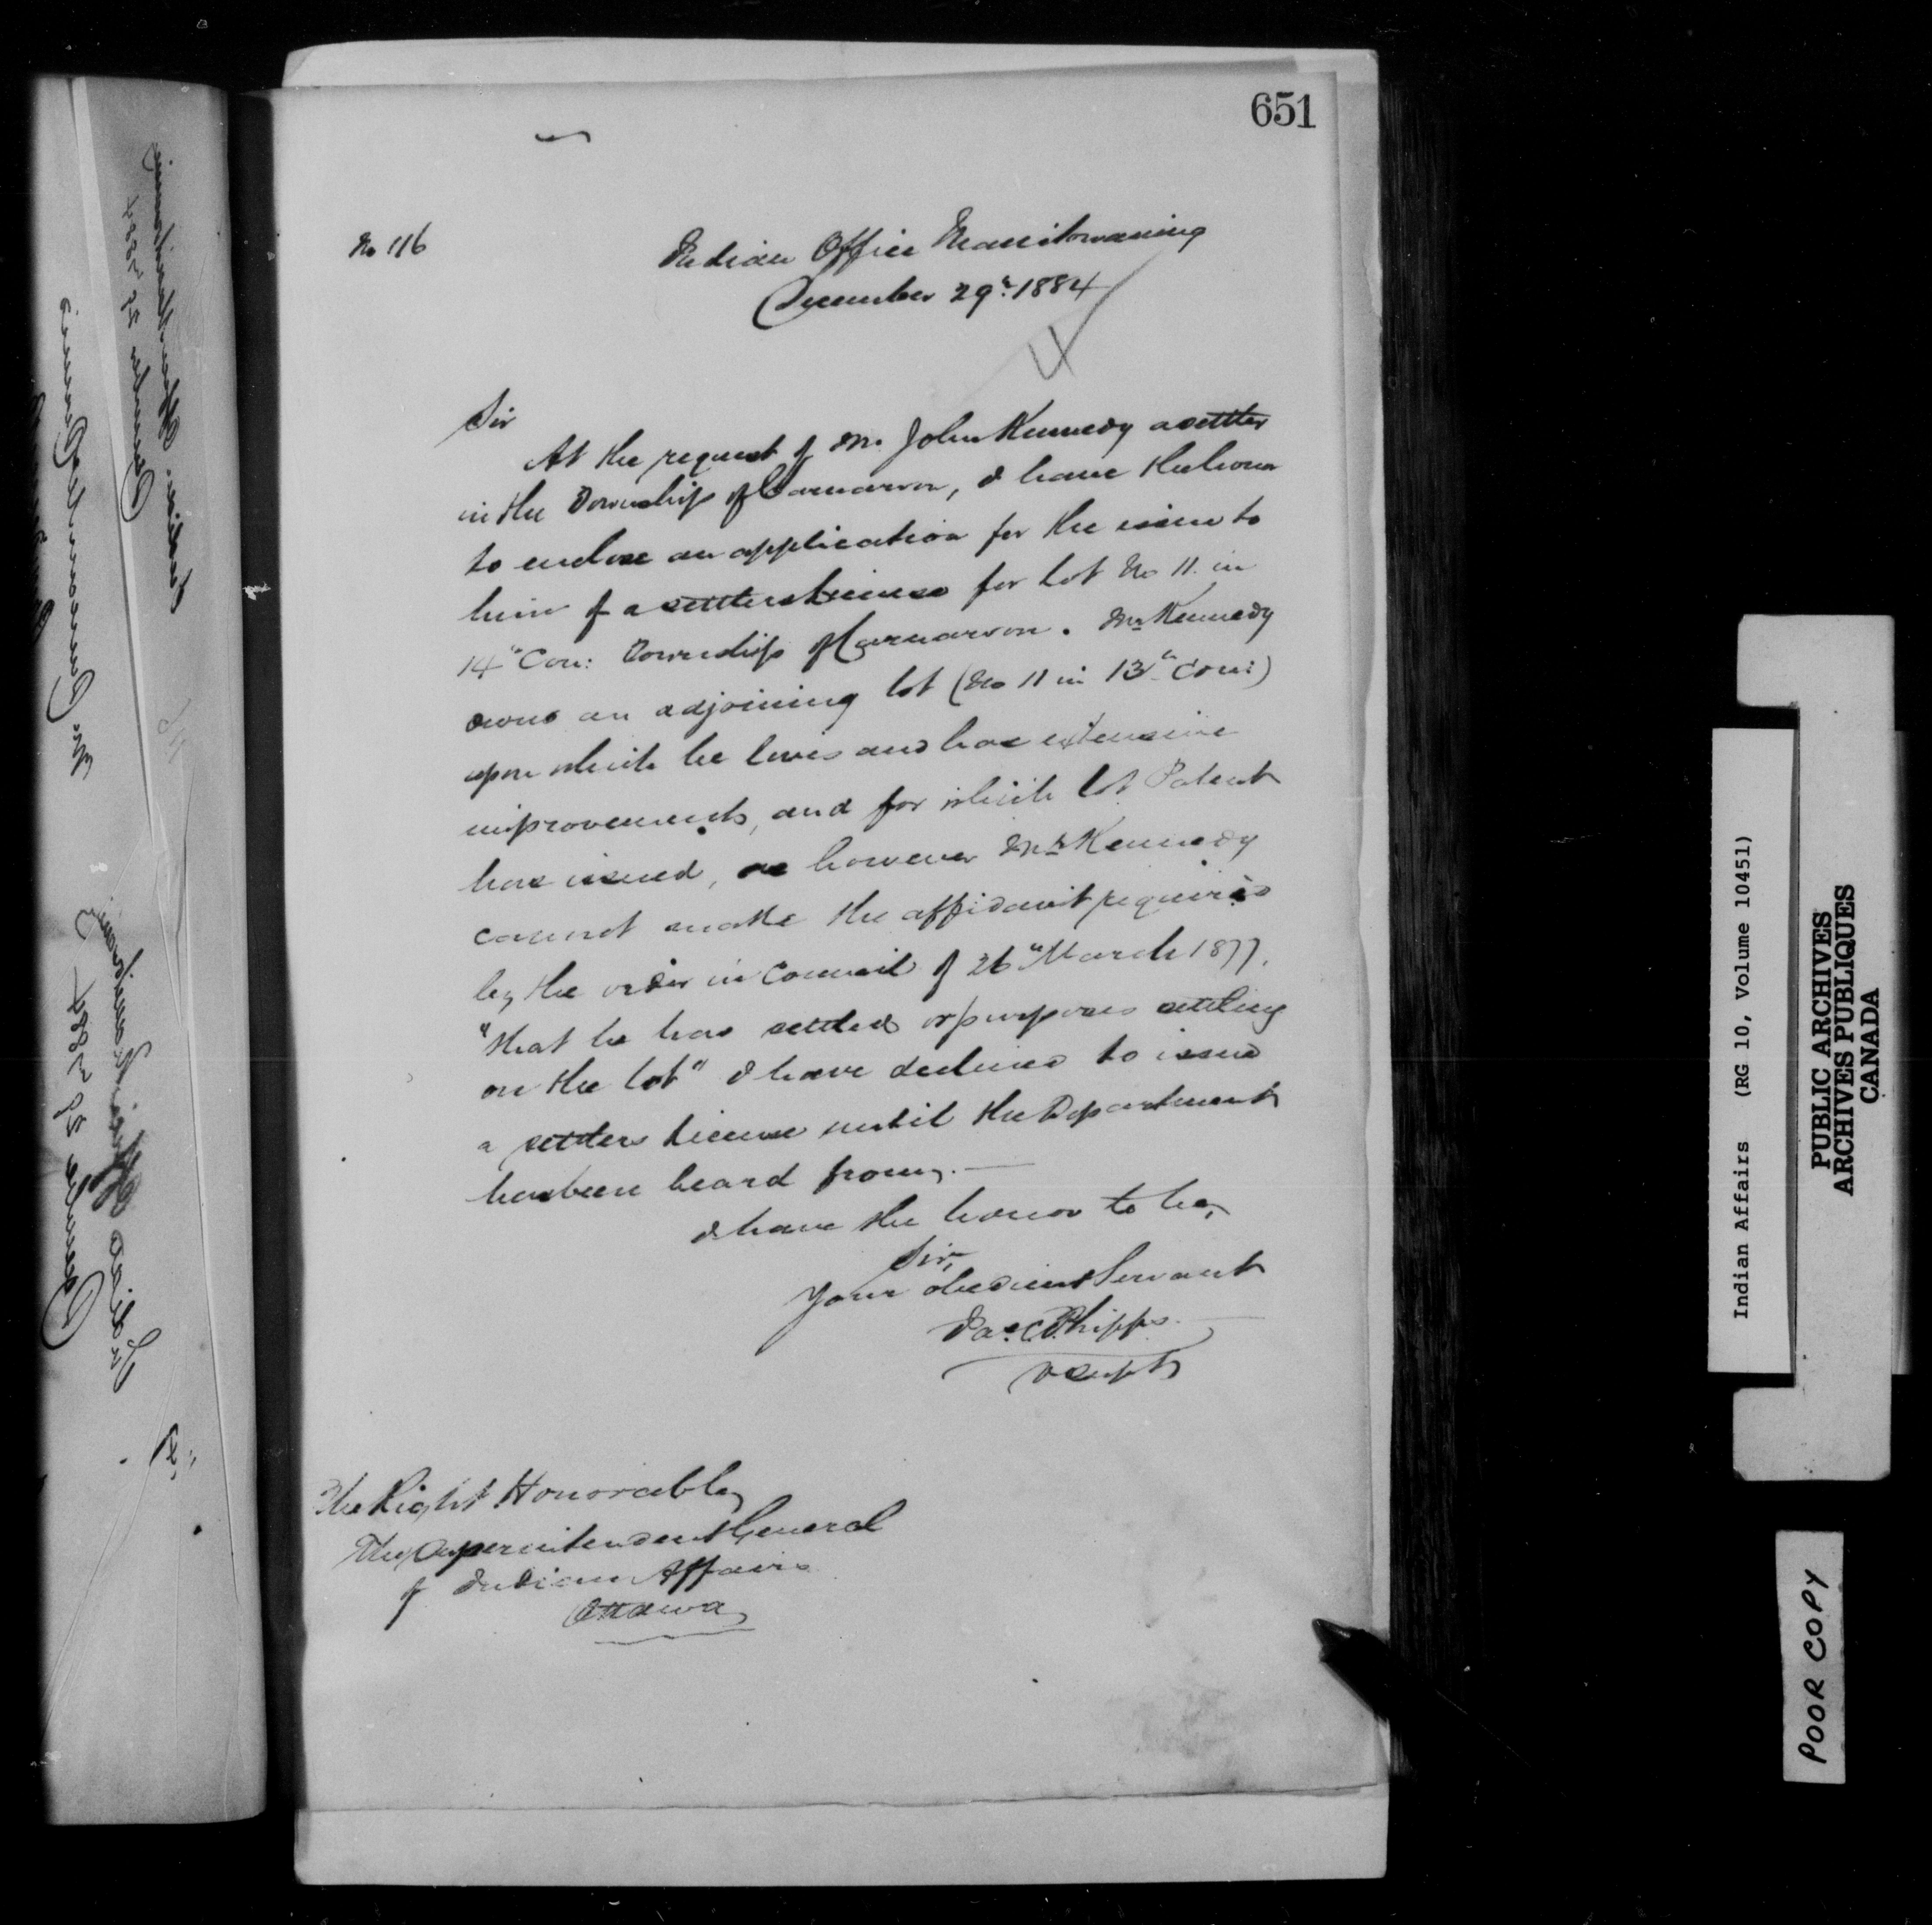 651
No 116
Indian Office Manitowaning
December 29th 1884
Sir
At the request of Mr. John Kennedy a settler
in the Township of Carnarvon, I have the honor
to enclose an application for the issue to
him of a settlers license for Lot No 11. in
14th Con: Township of Carnarvon. Mr Kennedy
owns an adjoining lot (No 11 in 13th Con:)
upon which he lives and has extensive
improvements, and for which lot Patent
has issued, as however Mr Kennedy
cannot make the affidavit required
by the order in Council of 26th March 1877,
"that he has settled or purposes settling
on the lot" I have declined to issue
a settlers license until the Department
has been heard from.
I have the honor to be,
Sir,
Your obedient Servant
Jas. C. Phipps
V Supt
The Right Honorable
The Superintendent General
of Indian Affairs
Ottawa
Indian Affairs (RG 10, Volume 10451)
PUBLIC ARCHIVES
ARCHIVES PUBLIQUES
CANADA
POOR COPY